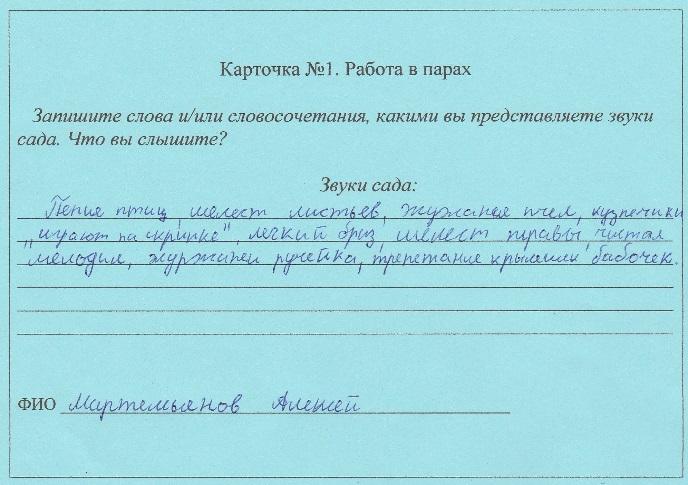 Карточка №1. Работа в парах
Запишите слова и/или словосочетания, какими вы представляете звуки
сада. Что вы слышите?
Звуки сада:
Пения птиц, шелест листьев, жужжания пчел, кузнечики
„играют на скрипке", легкий бриз, шелест травы, чистая
мелодия, журжании ручейка, трепетание крыльями бабочек.
ФИО Мартемьянов Алексей